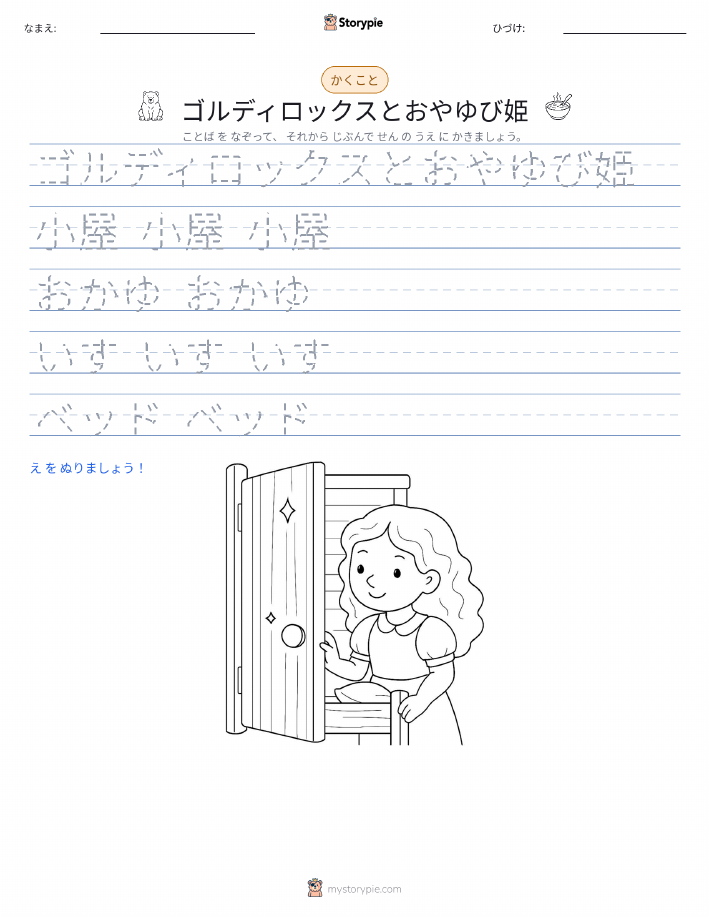 なまえ:
Storypie
ひづけ:
かくこと
ゴルディロックスとおやゆび姫
ことば を なぞって、 それから じぶんで せん の うえ に かきましょう。
ゴルディロックスとおやゆび姫
小屋 小屋 小屋
おかゆ おかゆ
いす いす いす
ベッド ベッド
え を ぬりましょう！
mystorypie.com